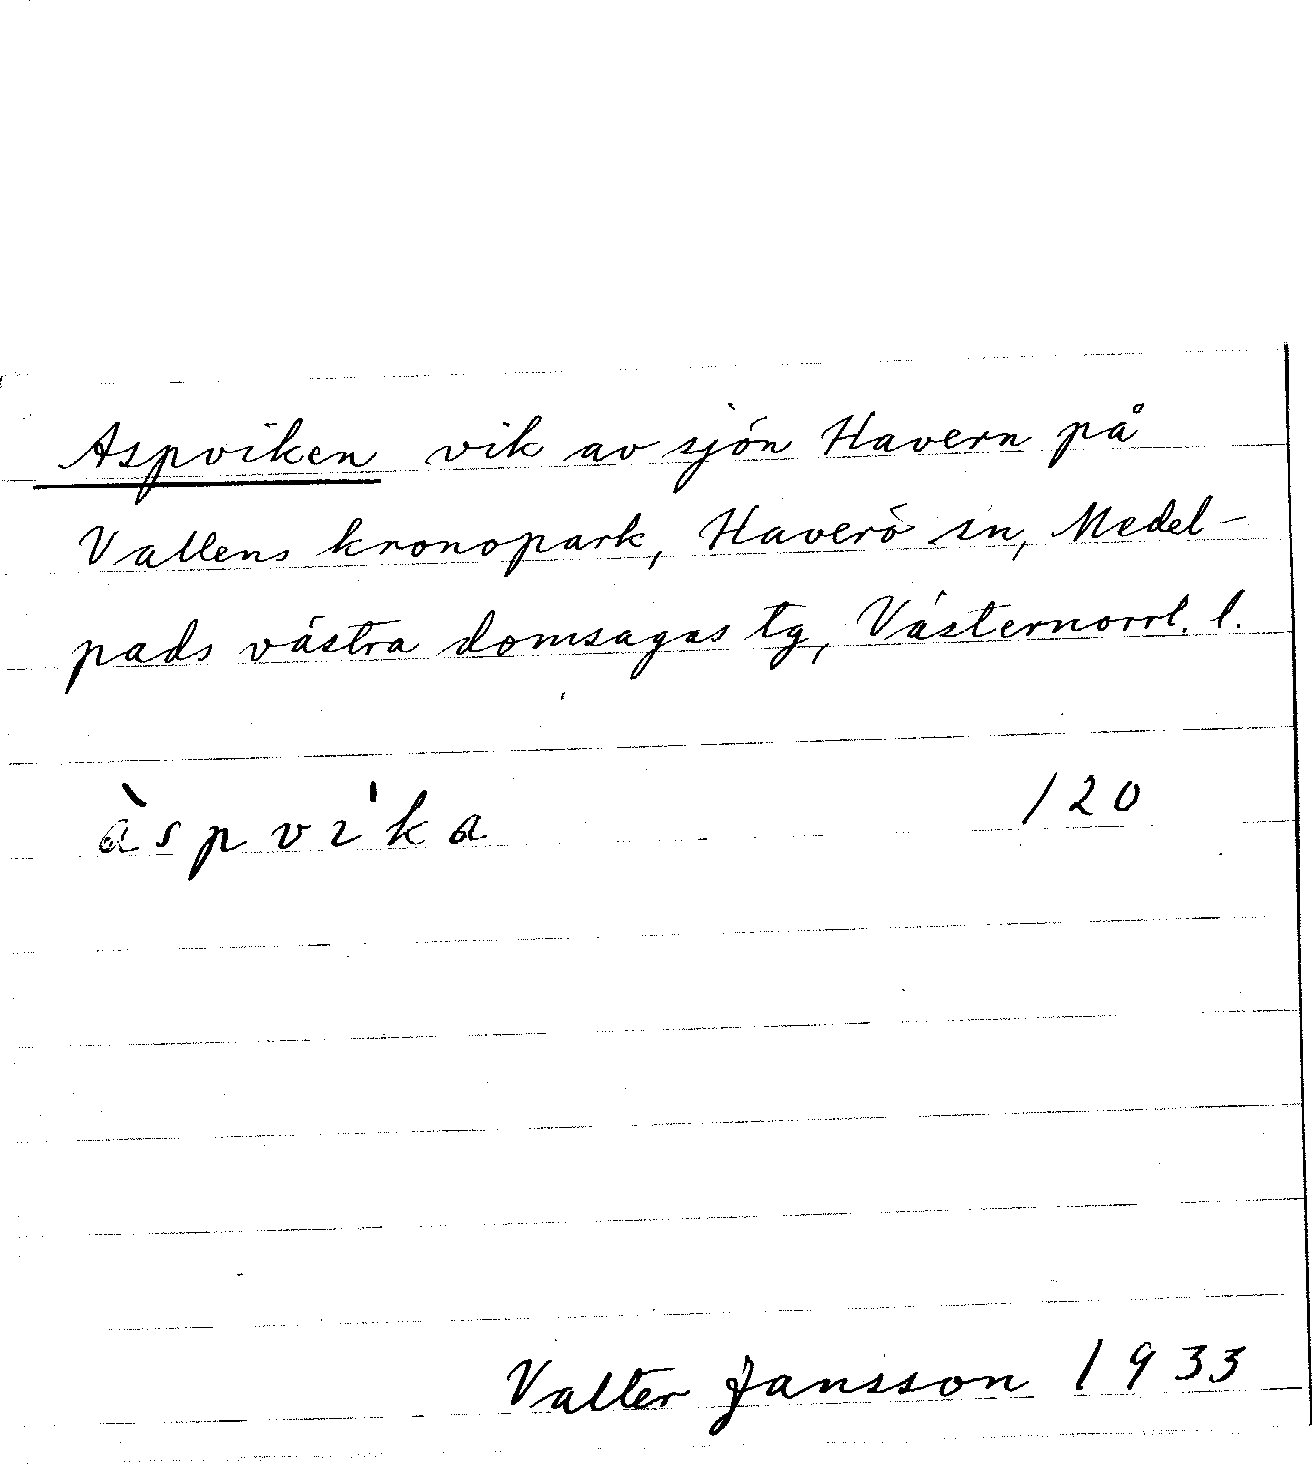 Aspviken vik av sjön Havern på
Vallens kronopark, Haverö sn, Medel-
pads västra domsagas tg, Västernorrl. l.
àspvíka 120
Valter Jansson 1933